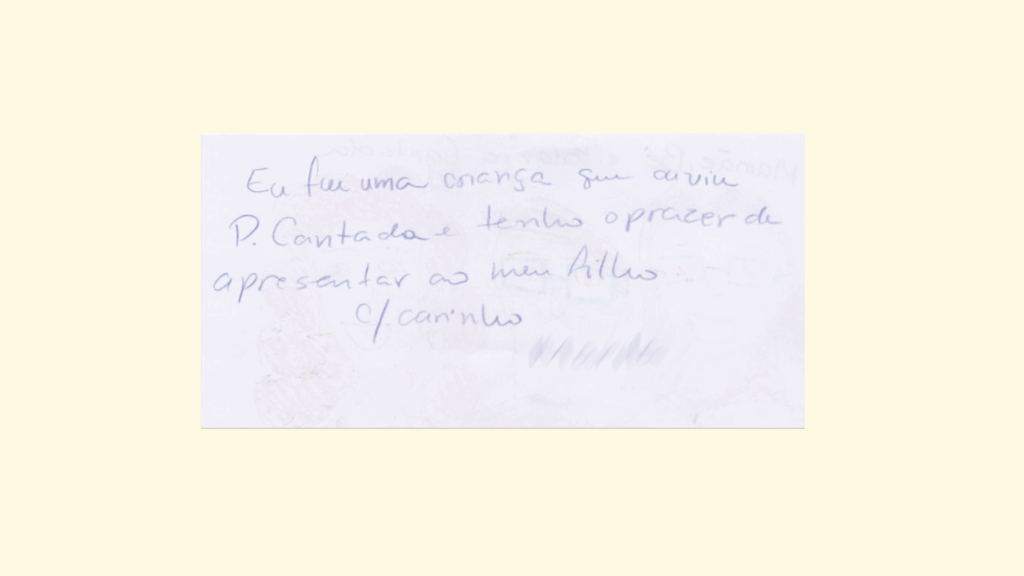 Eu fui uma criança que ouviu
P. Cantada e tenho o prazer de
apresentar ao meu filho.
c/ carinho